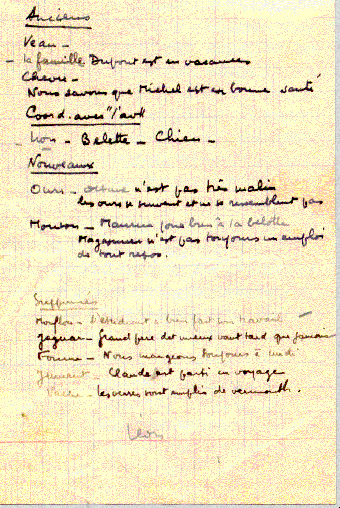 Anciens
Veau -
- la famille Dupont est en vacances
Chevre -
Nous savons que Michel est en bonne santé
Coord. avec "l'avt"
Lion - Belette - Chien -
Nouveaux
Ours - n'est pas très malin
les ours se suivent et ne se ressemblent pas
Mouton - Maurice joue bien à la belotte
Magasinier n'est pas toujours un emploi
de tout repos.
Supprimés
Mouflon - L'étudiant a bien fait son travail -
Jaguar - Grand père dit mieux vaut tard que jamais
- Nous mangeons toujours à midi
Jument - Claude est parti en voyage
Vache - les verres sont emplis de vermouth.